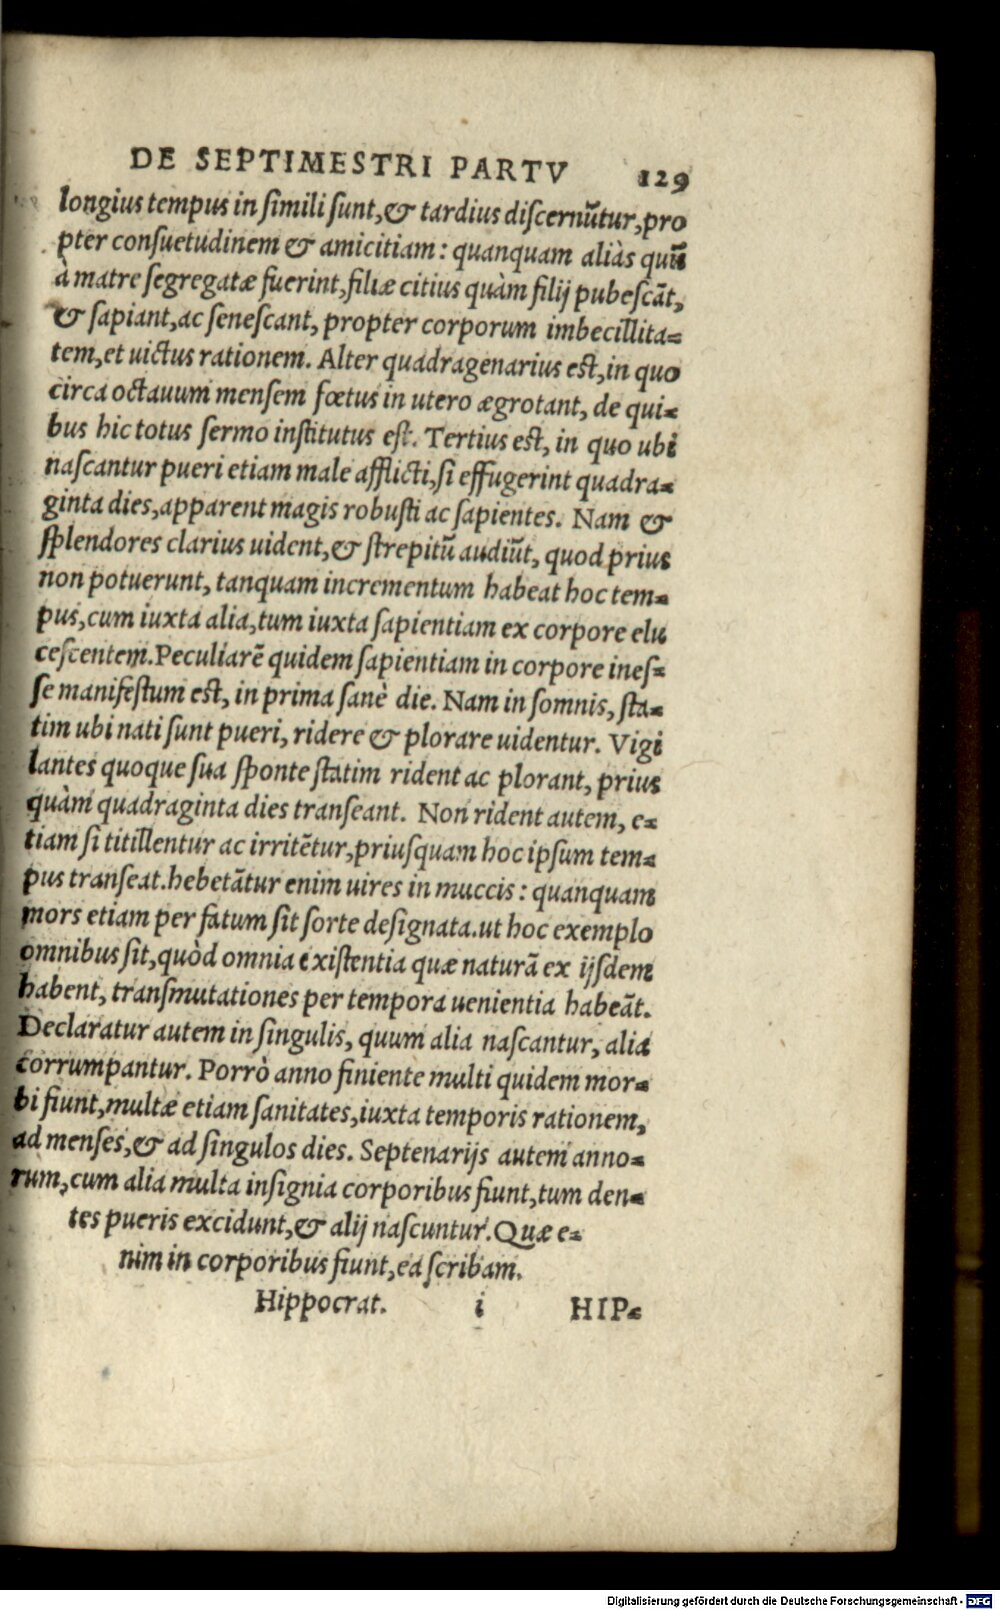 DE SEPTIMESTRI PARTV 129
longius tempus in simili sunt, & tardius discernũtur, pro
pter consuetudinem & amicitiam: quanquam aliàs quũ
à matre segregatæ fuerint, filiæ citius quàm filij pubescãt,
& sapiant, ac senescant, propter corporum imbecillita-
tem, et uictus rationem. Alter quadragenarius est, in quo
circa octauum mensem fœtus in utero ægrotant, de qui-
bus hic totus sermo institutus est. Tertius est, in quo ubi
nascantur pueri etiam male afflicti, si effugerint quadra-
ginta dies, apparent magis robusti ac sapientes. Nam &
splendores clarius uident, & strepitũ audiũt, quod prius
non potuerunt, tanquam incrementum habeat hoc tem-
pus, cum iuxta alia, tum iuxta sapientiam ex corpore elu
cescentem. Peculiarẽ quidem sapientiam in corpore ines-
se manifestum est, in prima sanè die. Nam in somnis, sta-
tim ubi nati sunt pueri, ridere & plorare uidentur. Vigi
lantes quoque sua sponte statim rident ac plorant, prius
quàm quadraginta dies transeant. Non rident autem, e-
tiam si titillentur ac irritẽtur, priusquam hoc ipsum tem-
pus transeat. hebetãtur enim uires in muccis: quanquam
mors etiam per fatum sit sorte designata. ut hoc exemplo
omnibus sit, quòd omnia existentia quæ naturã ex ijsdem
habent, transmutationes per tempora uenientia habeãt.
Declaratur autem in singulis, quum alia nascantur, alia
corrumpantur. Porrò anno finiente multi quidem mor-
bi fiunt, multæ etiam sanitates, iuxta temporis rationem,
ad menses, & ad singulos dies. Septenarijs autem anno-
rum, cum alia multa insignia corporibus fiunt, tum den-
tes pueris excidunt, & alij nascuntur. Quæ e-
nim in corporibus fiunt, ea scribam.
Hippocrat. i HIP-
Digitalisierung gefördert durch die Deutsche Forschungsgemeinschaft - DFG